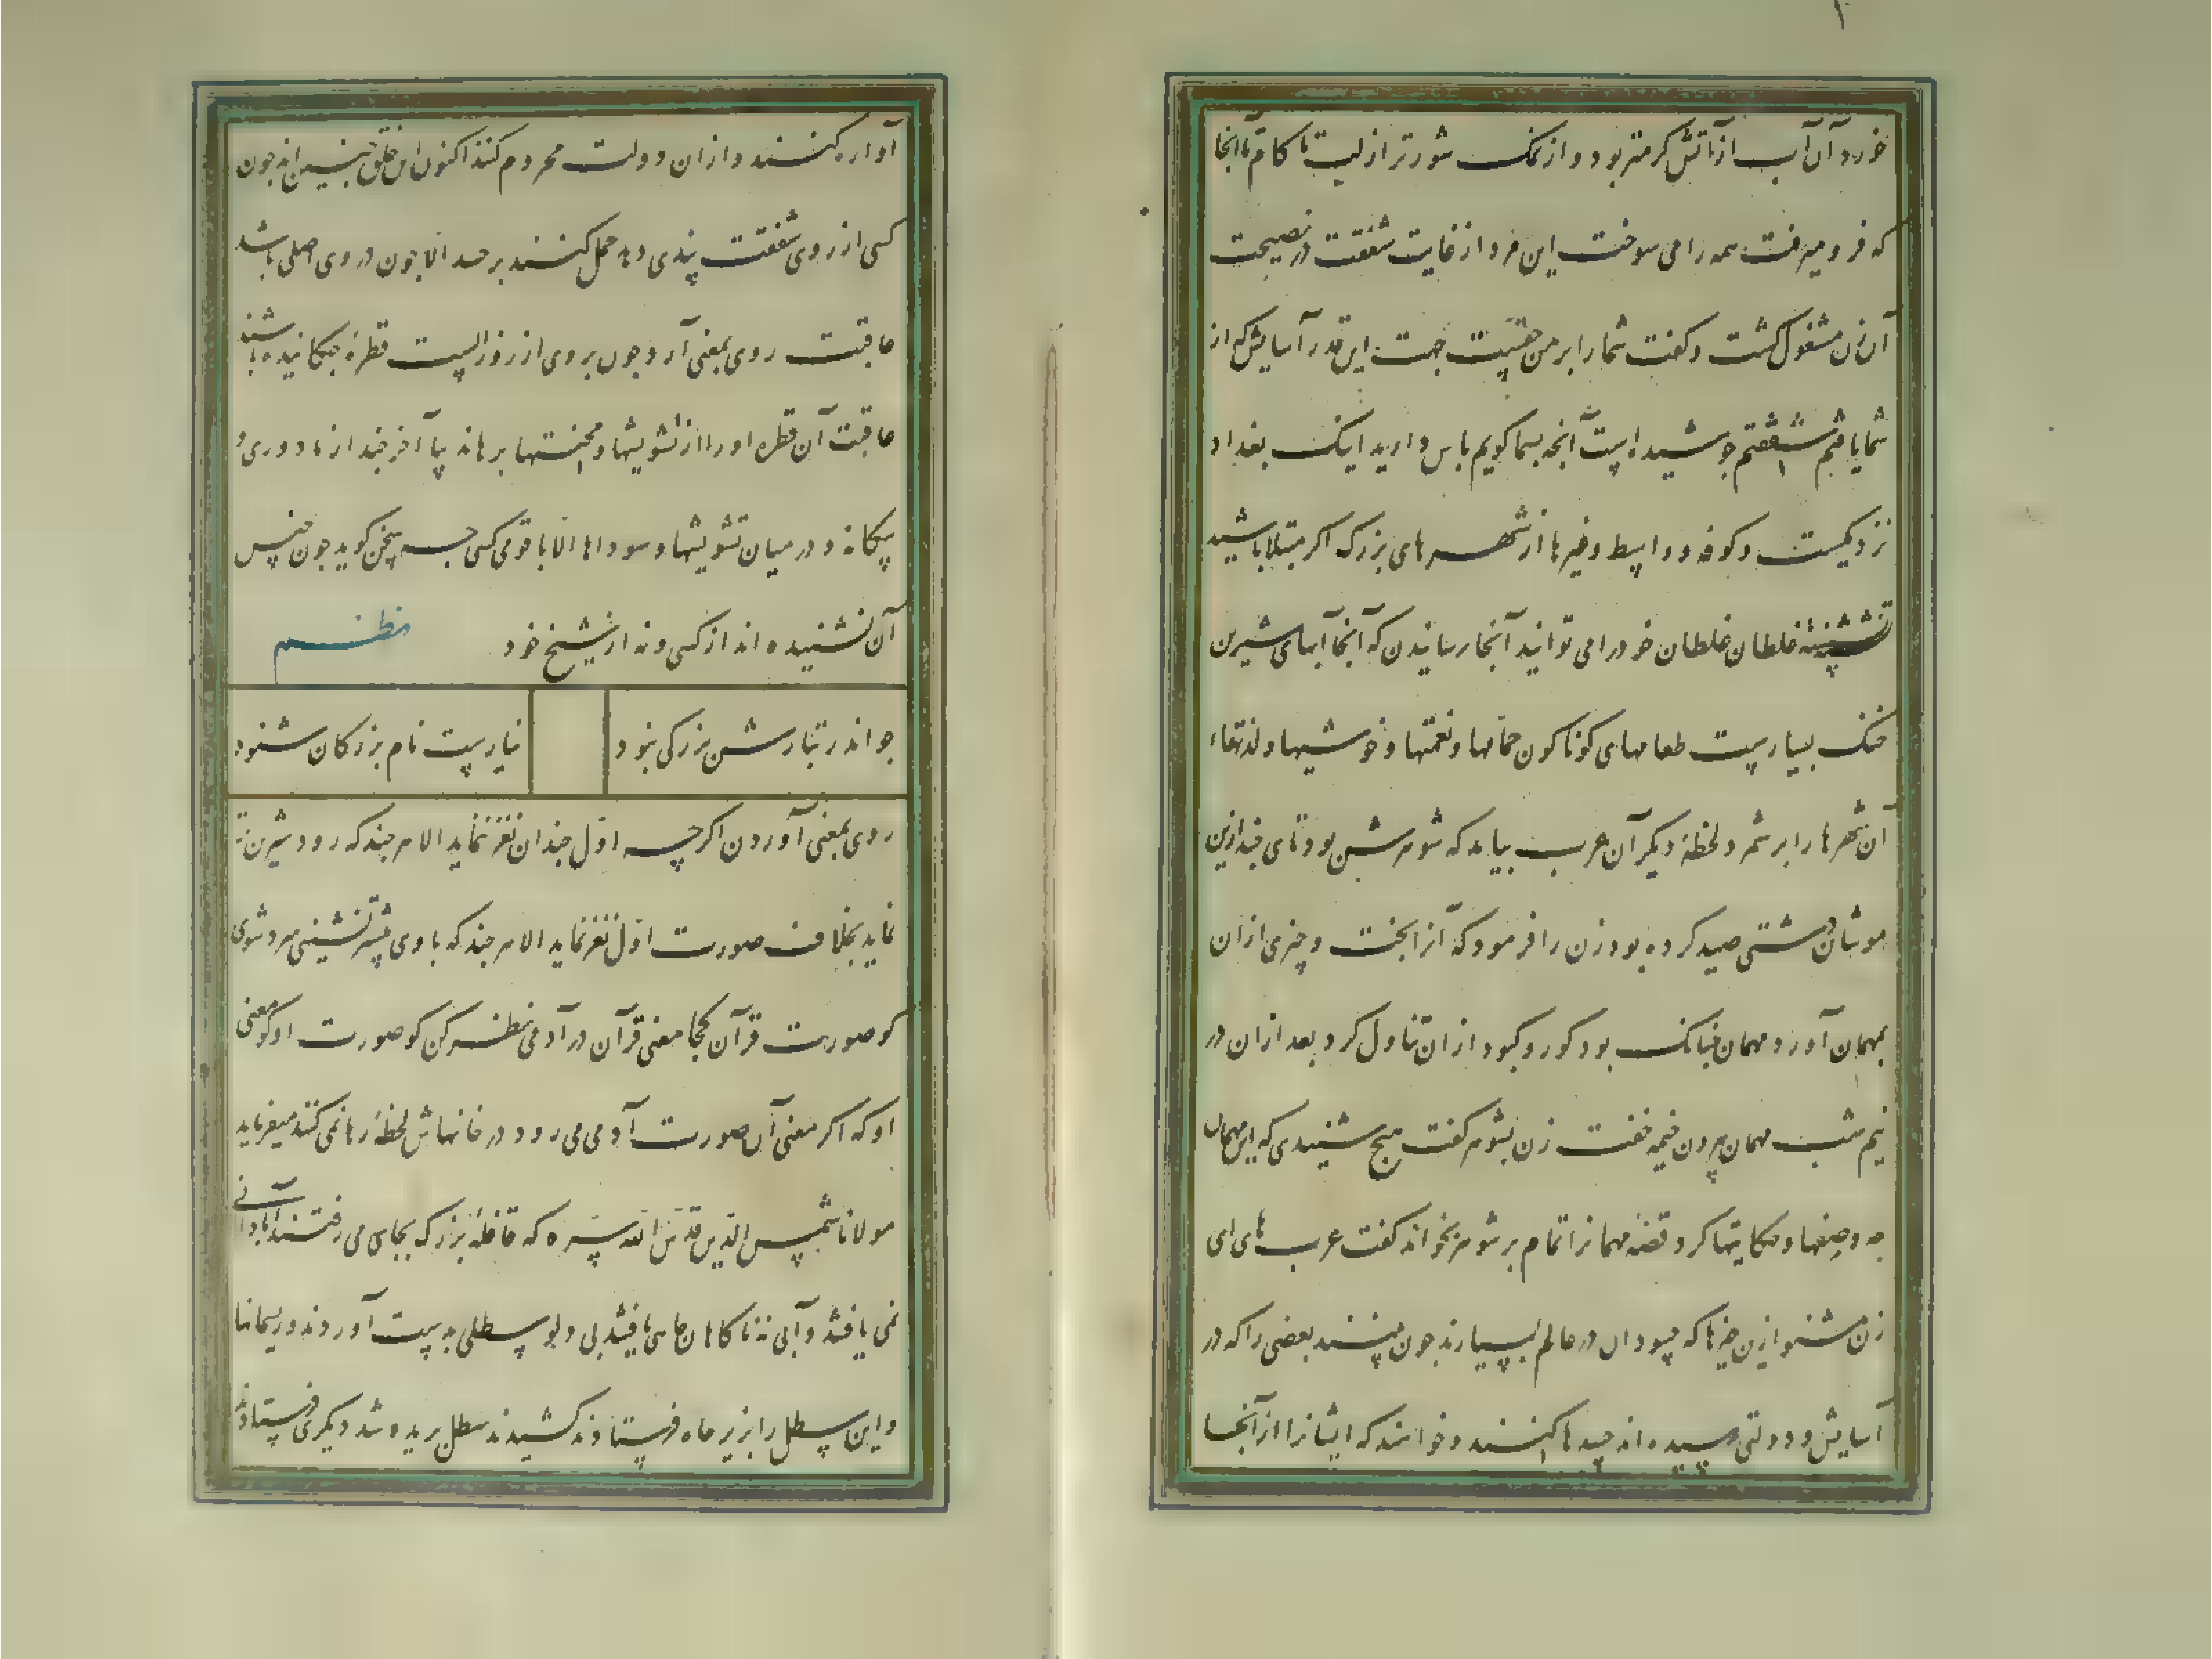 خورد آن آب از آتش گرمتر بود و از نمک شورتر از لب تا کام تا آنجا
که فرو میرفت همه را می سوخت این مرد از غایت شفقت در نصیحت
آن زن مشغول گشت و گفت شما را بر من حقیست جهت این قدر آسایش که از
شما یافتم شفقتم جوشیده است آنچه بشما گویم پاس دارید اینک بغداد
نزدیکست و کوفه و واسط و غیرها از شهرهای بزرگ اگر مبتلا باشید
نشسته نشسته غلطان غلطان خود را می توانید آنجا رسانیدن که آنجا آبهای شیرین
خنک بسیارست طعامهای گوناگون حمامها و نعمتها و خوشیها و لذتهاء
آن شهرها را بر شمرد لحظهٔ دیگر آن عرب بیامد که شوهرش بود تای چند ازین
موشان دشتی صید کرده بود زن را فرمود که آنرا پخت و چیزی از آن
بمهمان آورد مهمان چنانک بود کور و کبود از آن تناول کرد بعد از آن در
نیم شب مهمان بیرون خیمه خفت زن بشوهر گفت هیچ شنیدی که این مهمان
چه وصفها و حکایتها کرد قصهٔ مهمانرا تمام بر شوهر بخواند گفت عرب های ای
زن مشنو ازین چیزها که حسودان در عالم بسیارند چون بینند بعضی را که در
آسایش و دولتی رسیده اند حسدها کنند و خواهند که ایشانرا از آنجا
آواره کنند و از آن دولت محروم کنند اکنون این خلق چنین اند چون
کسی از روی شفقت پندی دهد حمل کنند بر حسد الا چون در وی اصلی باشد
عاقبت روی بمعنی آرد چون بر وی از روز الست قطرهٔ چکانیده باشند
عاقبت آن قطره او را از تشویشها و محنتها برهاند بیا آخر چند از ما دوری و
بیگانه و در میان تشویشها و سوداها الا با قومی کسی چه سخن گوید چون جنس
آن نشنیده اند از کسی و نه از شیخ خود نظم
چو اندر تبارش بزرگی نبود نیارست نام بزرگان شنود
روی بمعنی آوردن اگرچه اول چندان نغز ننماید الا هر چند که رود شیرین تر
نماید بخلاف صورت اول نغز نماید الا هر چند که با وی بیشتر نشینی سرد شوی
کو صورت قرآن و کجا معنی قرآن در آدمی نظر کن کو صورت او کو معنی
او که اگر معنی آن صورت آدمی می رود در خانهاش لحظهٔ رها نمی کنند میفرماید
مولانا شمس الدین قدس الله سره که قافلهٔ بزرگ بجای می رفتند آبادانی
نمی یافتند و آبی نه ناگاهان چاهی یافتند بی دلو سطلی بدست آوردند و ریسمانها
و این سطل را بزیر چاه فرستادند کشیدند سطل بریده شد دیگری فرستادند